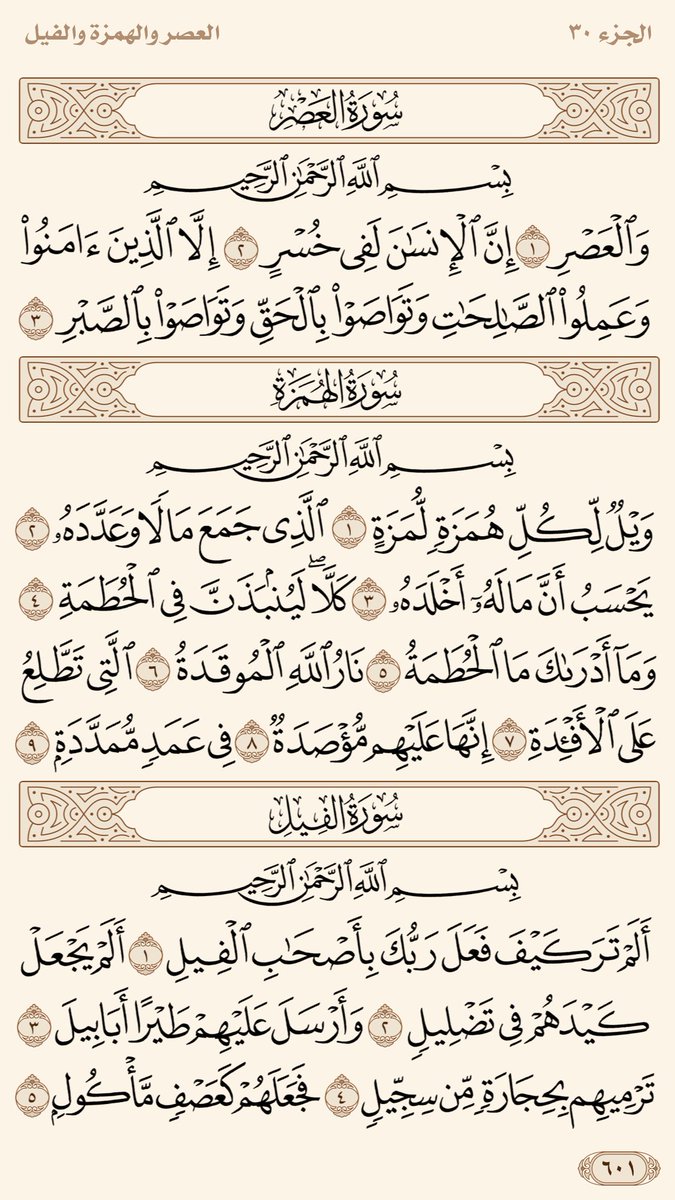 الجزء ٣٠
العصر والهمزة والفيل
سُورَةُ العَصْرِ
بِسْمِ ٱللَّهِ ٱلرَّحْمَٰنِ ٱلرَّحِيمِ
وَٱلْعَصْرِ ١ إِنَّ ٱلْإِنسَٰنَ لَفِى خُسْرٍ ٢ إِلَّا ٱلَّذِينَ ءَامَنُوا۟
وَعَمِلُوا۟ ٱلصَّٰلِحَٰتِ وَتَوَاصَوْا۟ بِٱلْحَقِّ وَتَوَاصَوْا۟ بِٱلصَّبْرِ ٣
سُورَةُ الهُمَزَةِ
بِسْمِ ٱللَّهِ ٱلرَّحْمَٰنِ ٱلرَّحِيمِ
وَيْلٌ لِّكُلِّ هُمَزَةٍ لُّمَزَةٍ ١ ٱلَّذِى جَمَعَ مَالًا وَعَدَّدَهُۥ ٢
يَحْسَبُ أَنَّ مَالَهُۥٓ أَخْلَدَهُۥ ٣ كَلَّا ۖ لَيُنۢبَذَنَّ فِى ٱلْحُطَمَةِ ٤
وَمَآ أَدْرَىٰكَ مَا ٱلْحُطَمَةُ ٥ نَارُ ٱللَّهِ ٱلْمُوقَدَةُ ٦ ٱلَّتِى تَطَّلِعُ
عَلَى ٱلْأَفْـِٔدَةِ ٧ إِنَّهَا عَلَيْهِم مُّؤْصَدَةٌ ٨ فِى عَمَدٍ مُّمَدَّدَةٍۭ ٩
سُورَةُ الفِيلِ
بِسْمِ ٱللَّهِ ٱلرَّحْمَٰنِ ٱلرَّحِيمِ
أَلَمْ تَرَ كَيْفَ فَعَلَ رَبُّكَ بِأَصْحَٰبِ ٱلْفِيلِ ١ أَلَمْ يَجْعَلْ
كَيْدَهُمْ فِى تَضْلِيلٍ ٢ وَأَرْسَلَ عَلَيْهِمْ طَيْرًا أَبَابِيلَ ٣
تَرْمِيهِم بِحِجَارَةٍ مِّن سِجِّيلٍ ٤ فَجَعَلَهُمْ كَعَصْفٍ مَّأْكُولٍۭ ٥
٦٠١